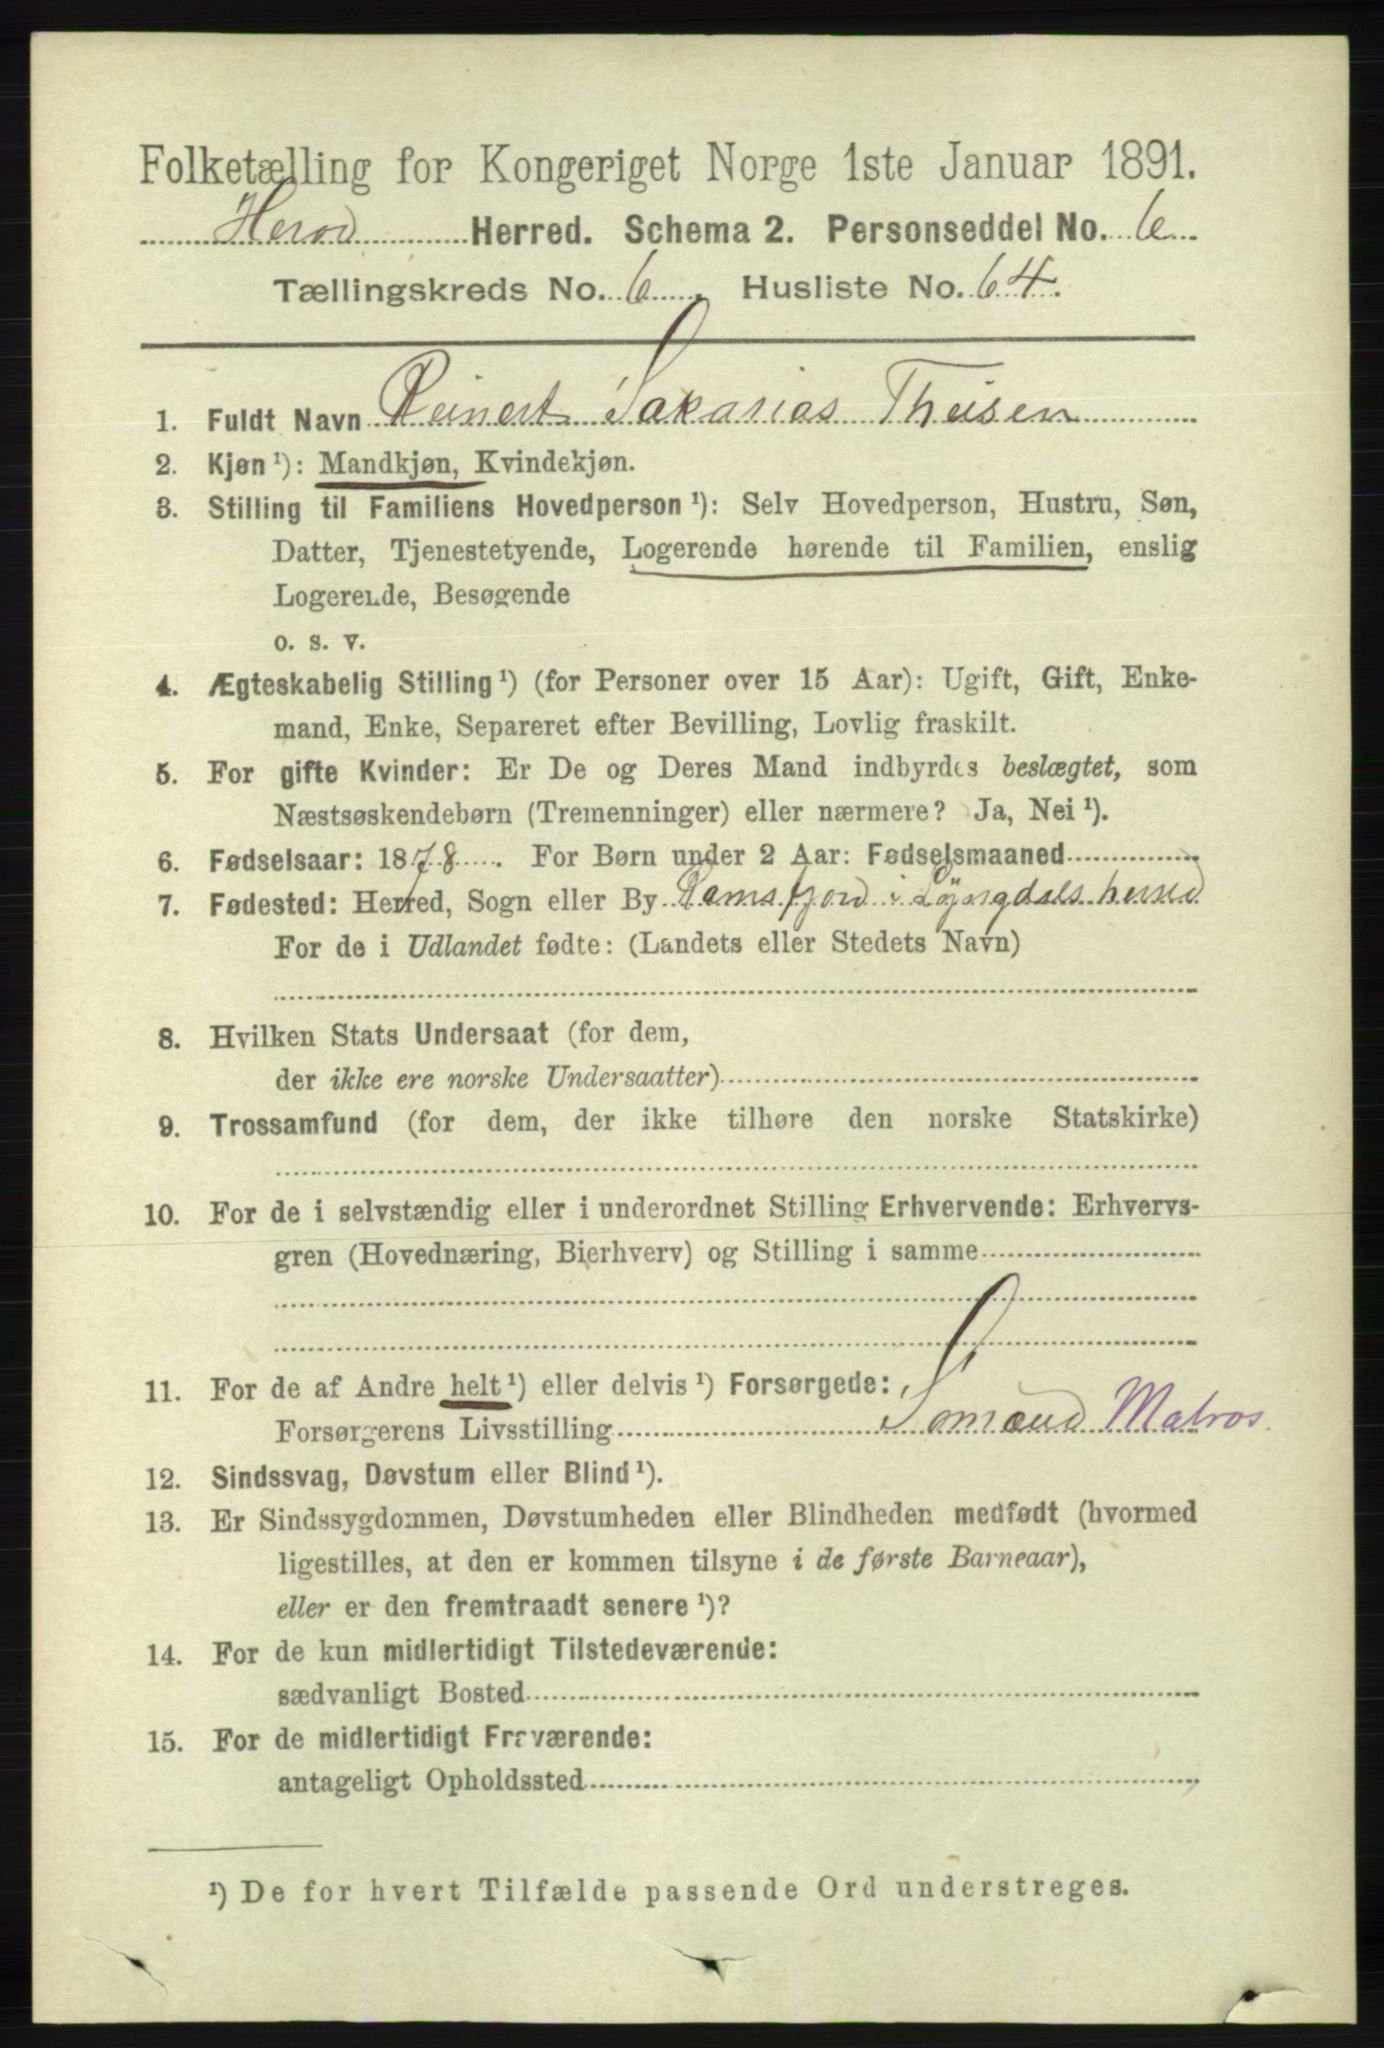 Folketælling for Kongeriget Norge 1ste Januar 1891.
Herod Herred. Schema 2. Personseddel No. 6
Tællingskreds No. 6. Husliste No. 64.
1. Fuldt Navn Reinert Sakarias Theisen
2. Kjøn ¹): Mandkjøn, Kvindekjøn.
3. Stilling til Familiens Hovedperson ¹): Selv Hovedperson, Hustru, Søn,
Datter, Tjenestetyende, Logerende hørende til Familien, enslig
Logerende, Besøgende
o. s. v.
4. Ægteskabelig Stilling ¹) (for Personer over 15 Aar): Ugift, Gift, Enke-
mand, Enke, Separeret efter Bevilling, Lovlig fraskilt.
5. For gifte Kvinder: Er De og Deres Mand indbyrdes beslægtet, som
Næstsøskendebørn (Tremenninger) eller nærmere? Ja, Nei ¹).
6. Fødselsaar: 1878. For Børn under 2 Aar: Fødselsmaaned
7. Fødested: Herred, Sogn eller By Ramsfjord i Lyngdals herred
For de i Udlandet fødte: (Landets eller Stedets Navn)
8. Hvilken Stats Undersaat (for dem,
der ikke ere norske Undersaatter)
9. Trossamfund (for dem, der ikke tilhøre den norske Statskirke)
10. For de i selvstændig eller i underordnet Stilling Erhvervende: Erhvervs-
gren (Hovednæring, Bierhverv) og Stilling i samme
11. For de af Andre helt ¹) eller delvis ¹) Forsørgede:
Forsørgerens Livsstilling Sømænd Matros.
12. Sindssvag, Døvstum eller Blind ¹).
13. Er Sindssygdommen, Døvstumheden eller Blindheden medfødt (hvormed
ligestilles, at den er kommen tilsyne i de første Barneaar),
eller er den fremtraadt senere ¹)?
14. For de kun midlertidigt Tilstedeværende:
sædvanligt Bosted
15. For de midlertidigt Fraværende:
antageligt Opholdssted
¹) De for hvert Tilfælde passende Ord understreges.